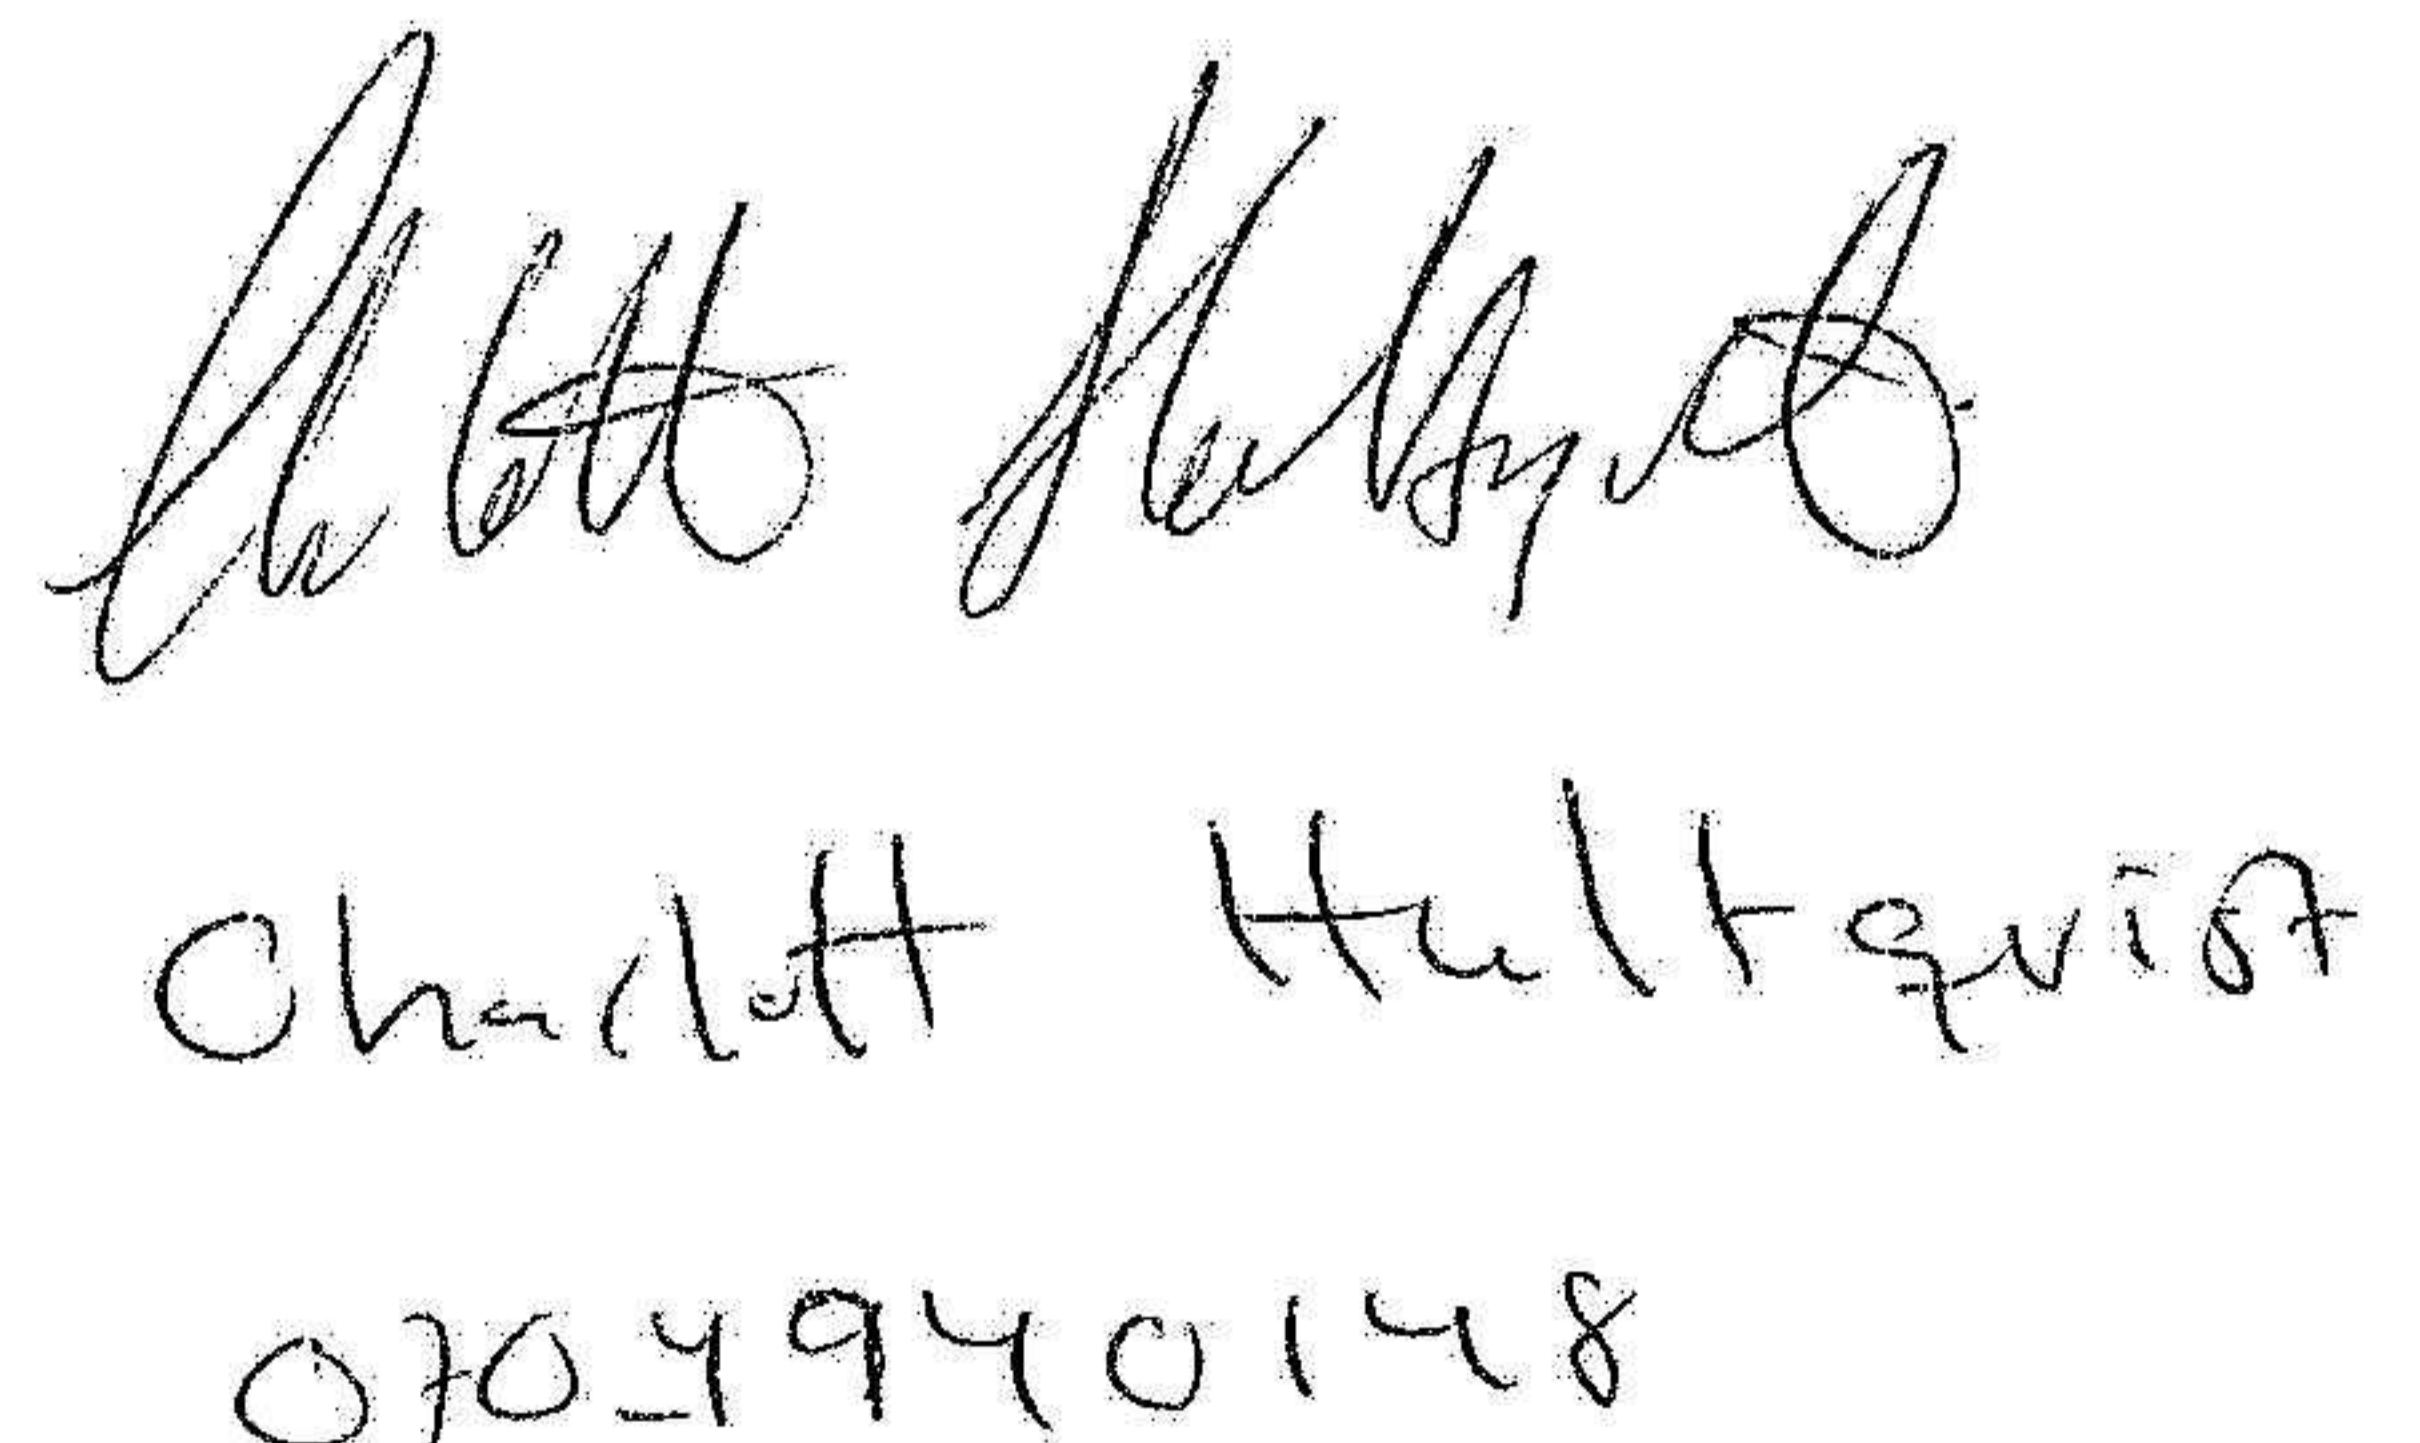 Charlott Hultqvist
Charlott Hultqvist
070-4940148